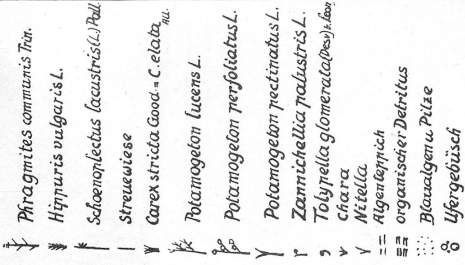 Phragmites communis Trin.
Hippuris vulgaris L.
Schoenoplectus lacustris (L.) Pall
Streuewiese
Carex stricta Good = C. elata ALL.
Potamogeton lucens L.
Potamogeton perfoliatus L.
Potamogeton pectinatus L.
Zannichellia palustris L.
Tolypella glomerata (Desv.) v. Leon.
Chara
Nitella
Algenteppich
organischer Detritus
Blaualgen u. Pilze
Ufergebüsch